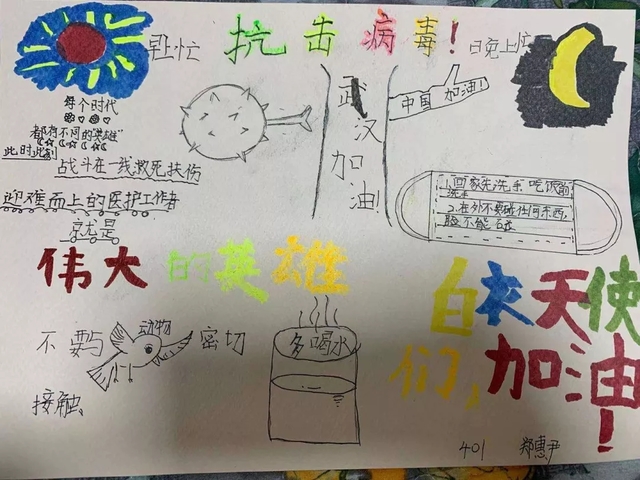 抗击病毒!
赶忙
日晚上忙
每个时代
都有不同的"英雄"
此时此刻
战斗在一线救死扶伤
迎难而上的医护工作者
就是
伟大的英雄
武汉加油!
中国加油!
1.回家先洗手 吃饭前
洗手
2.在外不要碰任何东西,
脸不能碰
白衣天使
们,加油!
不要与动物密切
接触、
多喝水
401 郑惠尹